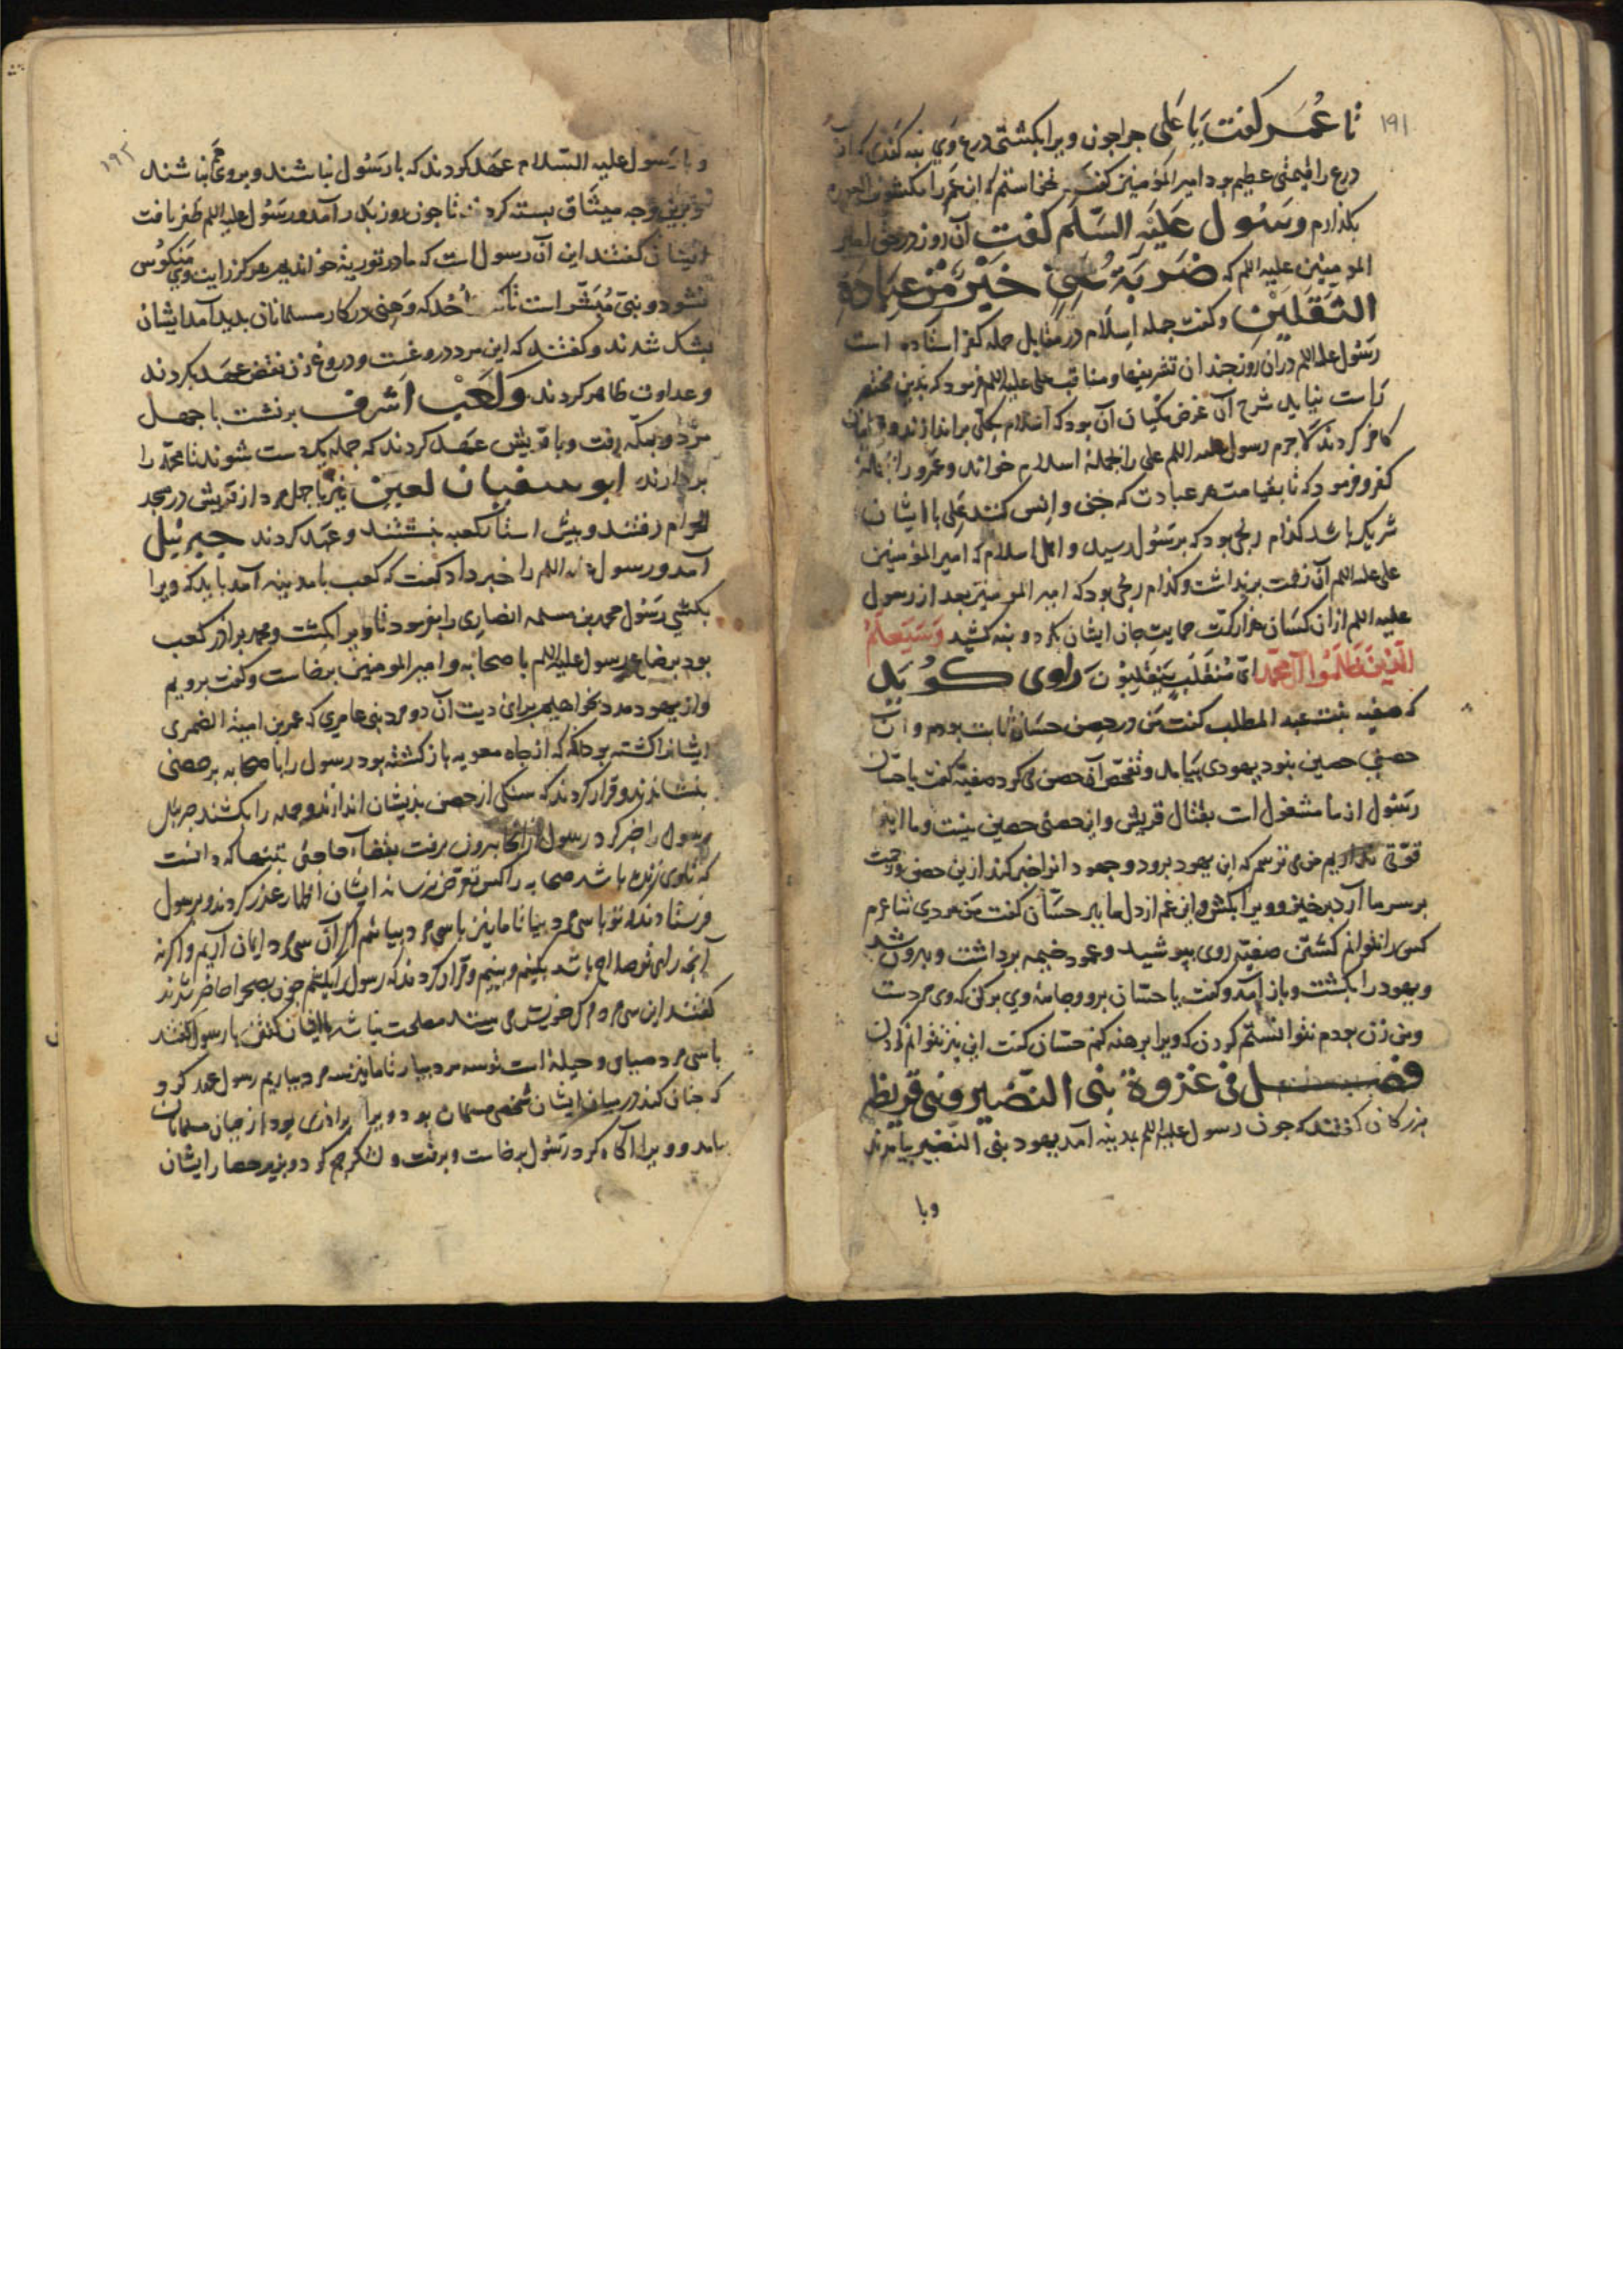 ۱۹۱
تا عُمَر کفت یَا عَلی جرا جون ویرا بکشتی درع وَی بنه کندی که آن
درع را قیمتی عظیم بود امیر المؤمنین کفت نخواستم که ابن عم را مکشوف العوره
بکذارم وَ رسُول عَلَیْهِ السَّلَم کفت آن روز در حق امیر
المومنین علیه اللم که ضَرْبَةُ عَلِیٍّ خَیْرٌ مِنْ عِبَادَةِ
الثَقَلَیْنِ و کفت جمله اِسلَام در مقابل جمله کفر استاده است
رسُول علیه اللم در ان روز جندان تشریفها و مناقب علی علیه اللم فرمود که بدین مختصر
رَاست نیاید شرح آن غرض مکیان آن بود که اسْلام بکلی براندازند و
کافر کردند لاجرم رسول علیه اللم علی را جملهٔ اسلام خواند و عمرو را جملهٔ
کفر و فرمود که تا بقیامت هر عبادت که جنی و اِنس کنند عَلی با ایشان
شریک باشد کدام رنجی بود که برسُول رسید و اهل اسلام که امیر المؤمنین
علی علیه اللم آن زحمت برنداشت و کدام رنجی بود که امیر المومنین بعد از رسول
علیه اللم از ان کسَان هزار کرّت حمایت جان ایشان کرد و بنه کشید وَسَیَعْلَمُ
الَّذِیْنَ ظَلَمُوا آل محمّد اَیَّ مُنْقَلَبٍ یَنْقَلِبُوْنَ رَاوی کوُیَد
که صفیه بنت عبد المطلب کفت مَن در حِصن حسّان ثابت بودم و ان
حصنی حصین بنود یهودی بیَامد و تفحّص آن حصن می کرد صفیّه کفت یا حسّان
رسُول از ما مشغول است بقتال قریش و این حصنی حصین نیست و ما را نیز
قوّتی نداریم من می ترسم که این یهود برود و جهودانرا خبر کند ازین حصن و زحمت
بر سر ما آرد برخیز و ویرا بکش و این غم از دل ما ببر حسّان کفت مَن مردی شاعرم
کسی را نتوانم کشتن صفیّه روی بپوشید و عمود خیمه برداشت و بیرون شد
و یهود را بکشت و باز آمد و کفت یا حسّان برو و جامهٔ وی برکن که وی مردست
و من زن بودم نتوانستم کردن که ویرا برهنه کنم حسّان کفت این نیز نتوانم کردن
فصـــل فی غزوة بنی النضیر و بنی قریظه
بزرکان کفتند که جون رسول علیه اللم بمدینه آمد یهود بنی النّضیر بیامدند
وبا
۱۹۲
و با رَسول علیه السّلام عهَد کردند که با رَسُول نباشند و بروی نباشند
و برین وجه میثاق بسته کردند تا جون روز بدر درآمد و رسُول علیه اللم ظفر یافت
ایشان کفتند این آن رسول است که ما در توریة خوانده ایم هرکز رایت وی مَنکوُس
نشود و نبیّ مُبَشَّر است تا اُحُد که وَهنی در کار مسلمانان بدید آمد ایشان
بشک شدند و کفتند که این مرد دروغست و دروغ زن نقض عهد بکردند
و عداوت ظاهر کردند وَ کَعْب اشرف برنشت با جهل
مرد و بمکّه رفت و با قریش عهَد کردند که جمله یکدست شوند تا محمّد را
بردارند ابو سفیان لعین نیز با جهل مرد از قریش در مسجد
الحرام رفتند و بیش استار کعبه بنشستند و عهد کردند جبرئیل
آمد و رسول علیه اللم را خبر داد کفت که کعب با مدینه آمد باید که ویرا
بکشی رَسُول محمد بن مسلمه انصاری را بفرمود تا ویرا بکُشت و محمد براذر کعب
بود برضاع رسول علیه اللم با صحابه و امیر المومنین برخاست و کفت برویم
و از یهود مدد بخواهیم برای دیت آن دو مرد بنی عامری که عمر بن امیة الضمری
ایشانرا کشته بود انکه که از جاه معویه باز کشته بود رسول را با صحابه بر حصنی
بنشاندند و قرار کردند که سنکی از حصن بذیشان اندازند و جمله را بکشند جبریل
رسول را خبر کرد رسول از آنجا بیرون برفت بقضاء حاجتی تنها که دانست
که تا وی زنده باشد صحابه را کس تعرّض نرساند ایشان اظهار عذر کردند و برسول
فرستادند که تو با سی مرد بیا تا ما نیز با سی مرد بیائیم اکر آن سی مرد ایمان آرند و اکر نه
آنجه رای تو صلاح باشد بکنیم و بینیم و قرار کردند که رسول را بکشیم جون بصحرا حاضر شدند
کفتند این سی مرد مرکب خویش می بینند مصلحت نباشد با ایشان کفتن با رسول کفتند
با سی مرد صیاح و حیله است تو سه مرد بیار تا ما نیز سه مرد بیاریم رسول عهد کرد
که جنان کند در میان ایشان شخصی مسلمان بود و ویرا براذری بود از جهان مسلمانان
بیامد و ویرا آکاه کرد رسُول برخاست و برفت و لشکر جمع کرد و بزیر حصار ایشان